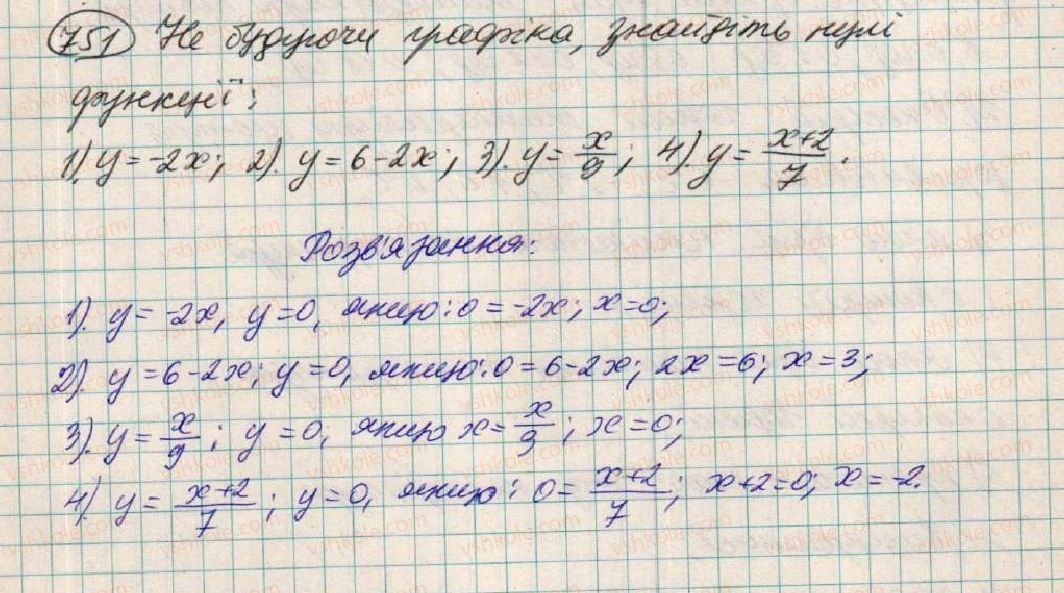 751 Не будуючи графіка, знайдіть нулі
функції:
1). y = -2x; 2). y = 6-2x; 3). y = x/9; 4). y = x+2/7.
Розв'язання:
1). y = -2x, y=0, якщо: 0 = -2x; x=0;
2). y = 6-2x; y=0, якщо: 0 = 6-2x; 2x = 6; x = 3;
3). y = x/9; y=0, якщо x = x/9; x=0;
4) y = x+2/7; y=0, якщо: 0 = x+2/7; x+2=0; x = -2.